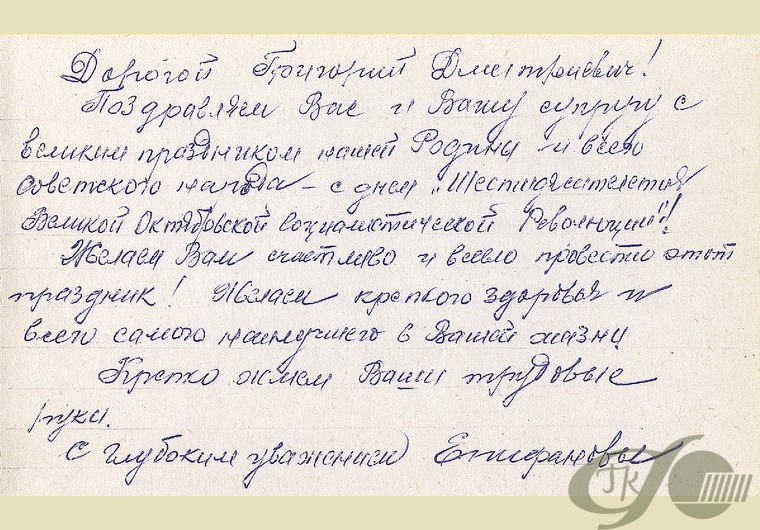 Дорогой Григорий Дмитриевич!
Поздравляем Вас и Вашу супругу с
великим праздником нашей Родины и всего
советского народа – с днем „Шестидесятилетия
Великой Октябрьской социалистической Революции"!
Желаем Вам счастливо и весело провести этот
праздник! Желаем крепкого здоровья и
всего самого наилучшего в Вашей жизни
Крепко жмем Ваши трудовые
руки.
С глубоким уважением Епифановы